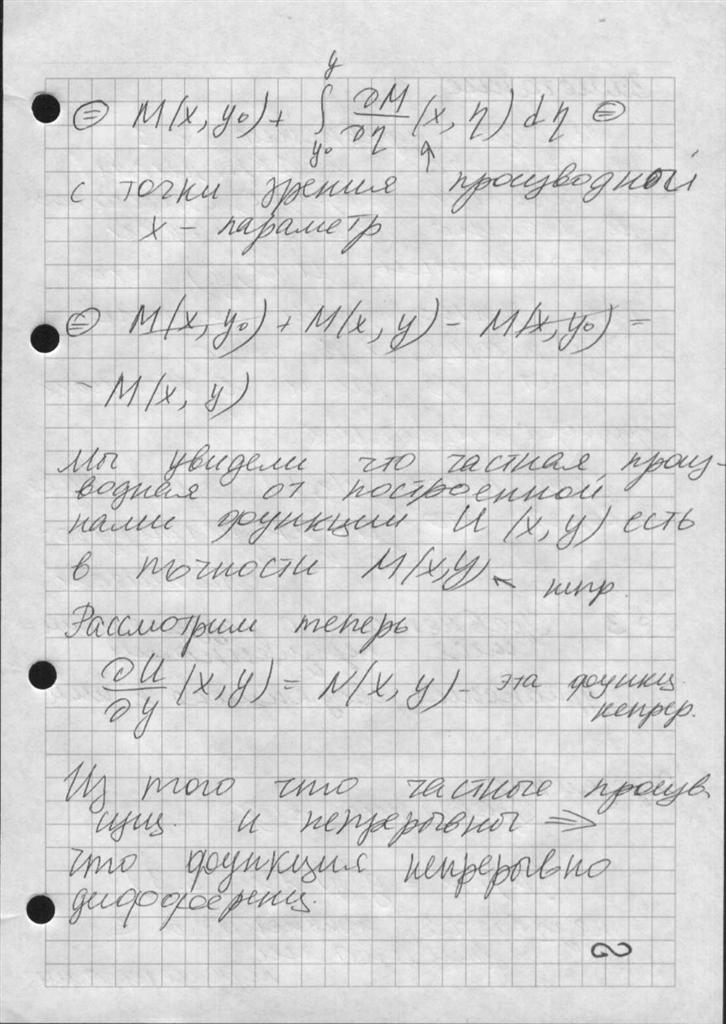 ⊜ M(x, y₀) + ∫_{y₀}^{y} ∂M/∂η (x, η) dη ⊜
с точки зрения производной
x - параметр
⊜ M(x, y₀) + M(x, y) - M(x, y₀) =
= M(x, y)
Мы увидели что частная произ-
водная от построенной
нами функции U (x, y) есть
в точности M(x,y) ← непр.
Рассмотрим теперь
∂U/∂y (x, y) = N(x, y) - эта функц.
непрер.
Из того что частные произв.
сущ. и непрерывны ⇒
что функция непрерывно
дифференц.
2